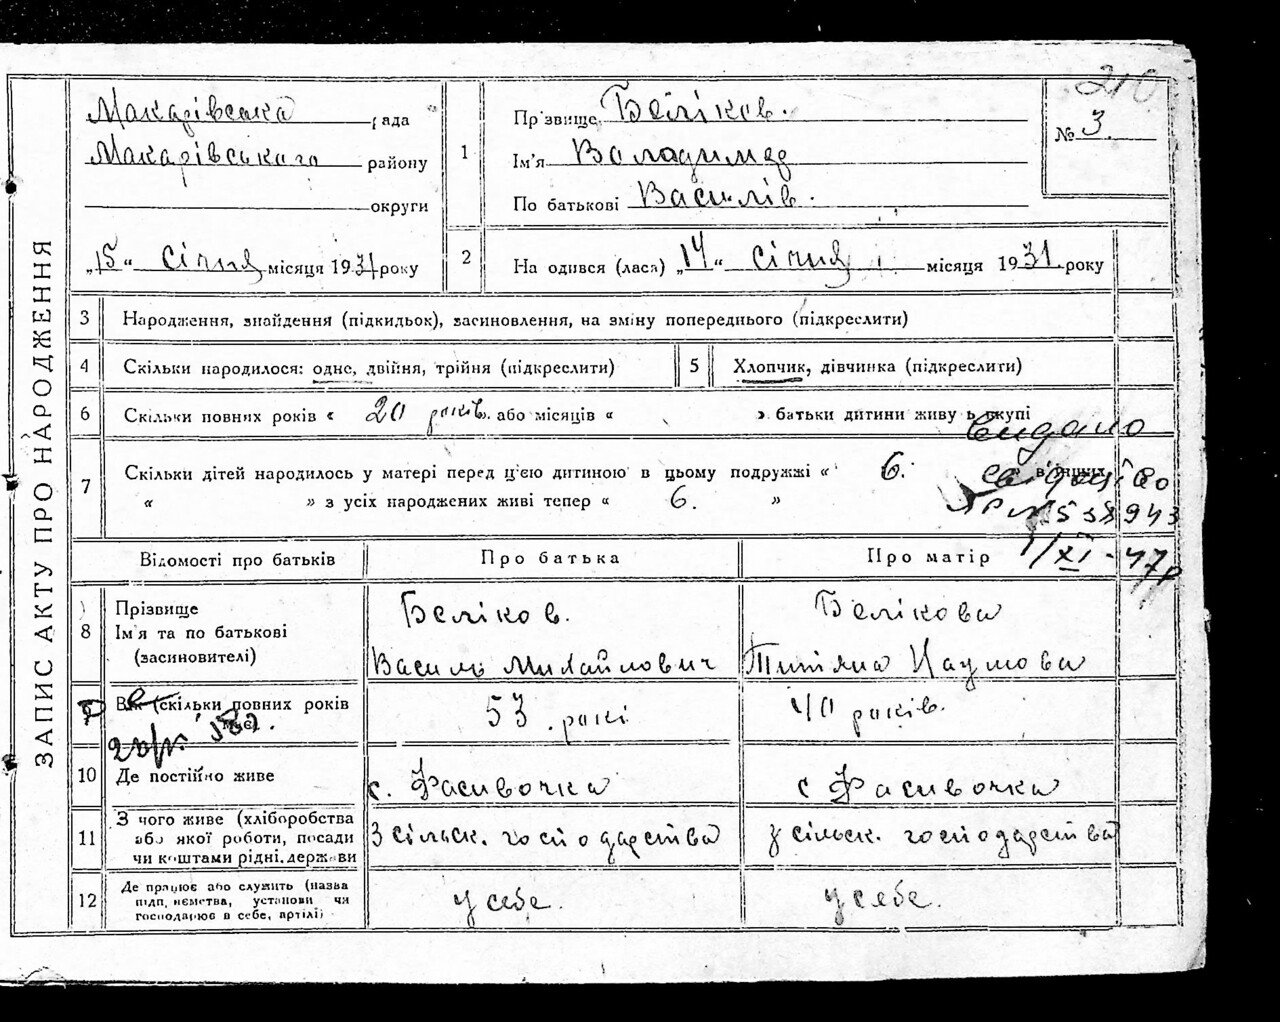 210.
ЗАПИС АКТУ ПРО НАРОДЖЕННЯ
Макарівська рада
Макарівського району
округи
„15“ січня місяця 1931 року
1
Прізвище Беліков.
Ім'я Володимир
По батькові Василів.
№ 3.
2
На одився (лася) „14“ січня місяця 1931. року
3 Народження, знайдення (підкидьок), засиновлення, на зміну попереднього (підкреслити)
4 Скільки народилося: одне, двійня, трійня (підкреслити)
5 Хлопчик, дівчинка (підкреслити)
6 Скільки повних років « 20 років» або місяців « » батьки дитини живу ь вкупі
7 Скільки дітей народилось у матері перед ц'єю дитиною в цьому подружжі « 6.
« » з усіх народжених живі тепер « 6. »
Видано
538943
1/XI-47р
Відомості про батьків
Про батька
Про матір
8 Прізвище
Ім'я та по батькові
(засиновителі)
Беліков.
Василь Михайлович
Белікова
Титяна Наумова
Вік (скільки повних років має)
53. рокі
40 років.
10 Де постійно живе
с. Фасивочка
с Фасивочка
11 З чого живе (хліборобства
або якої роботи, посади
чи коштами рідні, держави
З сільск. господарства
з сільск. господарства
12 Де працює або служить (назва
підп, ємства, установи чи
господарює в себе, артілі)
у себе.
у себе.